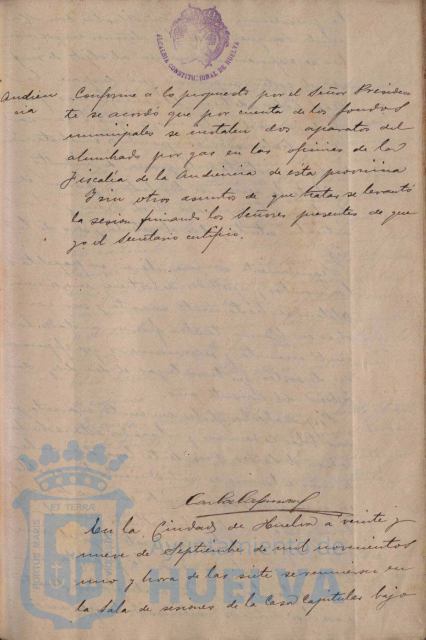 ALCALDIA CONSTITUCIONAL DE HUELVA
Audien
cia
Conforme á lo propuesto por el Señor Presiden
te se acordó que por cuenta de los fondos
municipales se instalen dos aparatos del
alumbrado por gas en las oficinas de la
Fiscalía de la Audiencia de esta provincia
Y sin otros asuntos de que tratar se levantó
la sesion firmando los Señores presentes de que
yo el Secretario certifico.
En la Ciudad de Huelva a veinte y
nueve de Septiembre de mil novecientos
uno y hora de las siete se reunieron en
la Sala de sesiones de la Casa Capitular bajo
PORTUS MARIS
ET TERRÆ
Ayuntamiento de
HUELVA